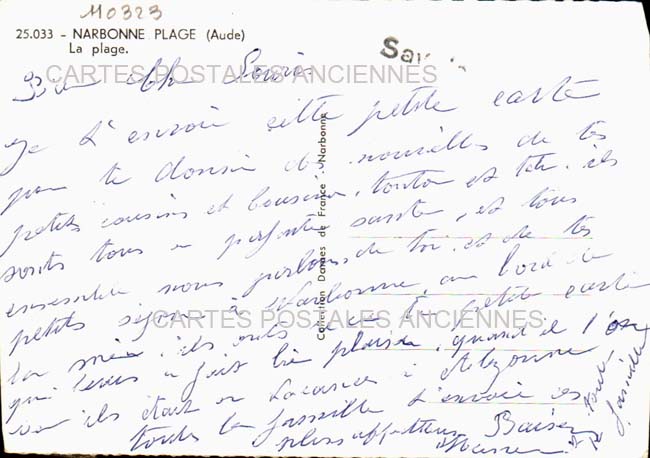 110323
25.033 - NARBONNE PLAGE (Aude)
La plage.
CARTES POSTALES ANCIENNES
Je t'envoie cette petite carte
pour te donner des nouvelles de tes
petits cousins et cousines, tonton et tata. ils
sonts tous en parfaite santé, et tous
ensemble nous parlons de toi et de tes
petits séjour à Narbonne, au bord de
la mer. ils ont eu ta petite carte
qui leurs a fait bien plaisir, quand il l'on
vu ils était en vacances à
toute la famille t'envoie ces
plus Baisers
CARTES POSTALES ANCIENNES
Collection Dannes de France - Narbonne